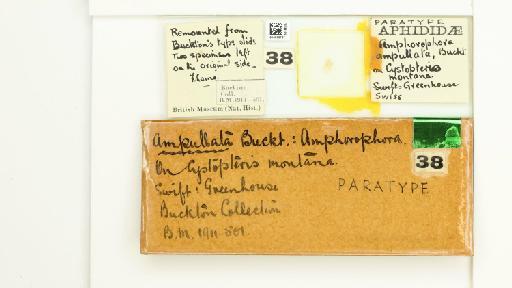 Remounted from
Buckton's type slide
Two specimens left
on the original side.
38
Buckton
Coll.
B.M. 1911-501.
British Museum (Nat. Hist.)
PARATYPE
APHIDIDÆ
Amphorophora
ampullata, Buckt
on Cystopteris
montana.
Swift: Greenhouse
Swiss
Ampullata Buckt.: Amphorophora.
On Cystoptĕris montāna.
Swift: Greenhouse
Buckton Collection
B.M. 1911-501.
PARATYPE
38